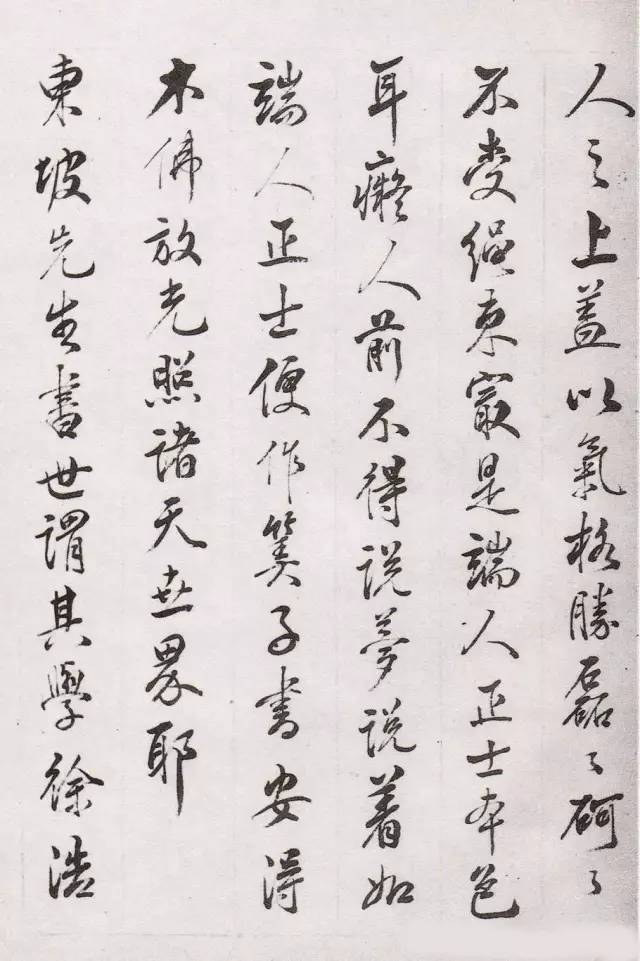 人之上蓋以氣格勝磊〻砢〻
不受繩束寂是端人正士本色
耳癡人前不得说夢说着如
端人正士便作筭子書安得
木佛放光照諸天世界耶
東坡先生書世謂其學徐浩